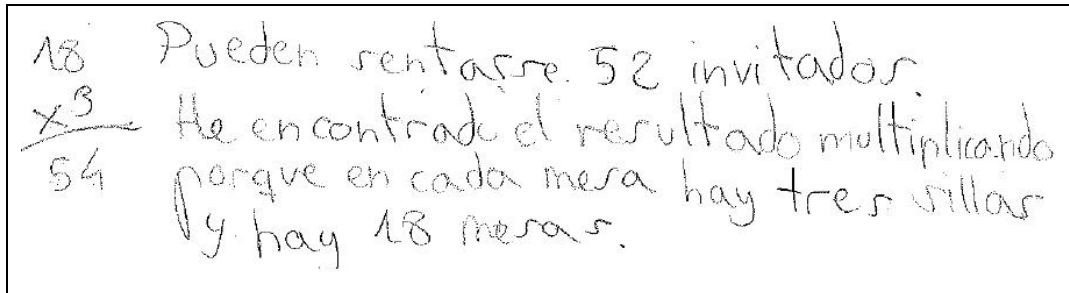 18
x3
54
Pueden sentarse. 52 invitados.
He encontrado el resultado multiplicando
porque en cada mesa hay tres sillas
y hay 18 mesas.